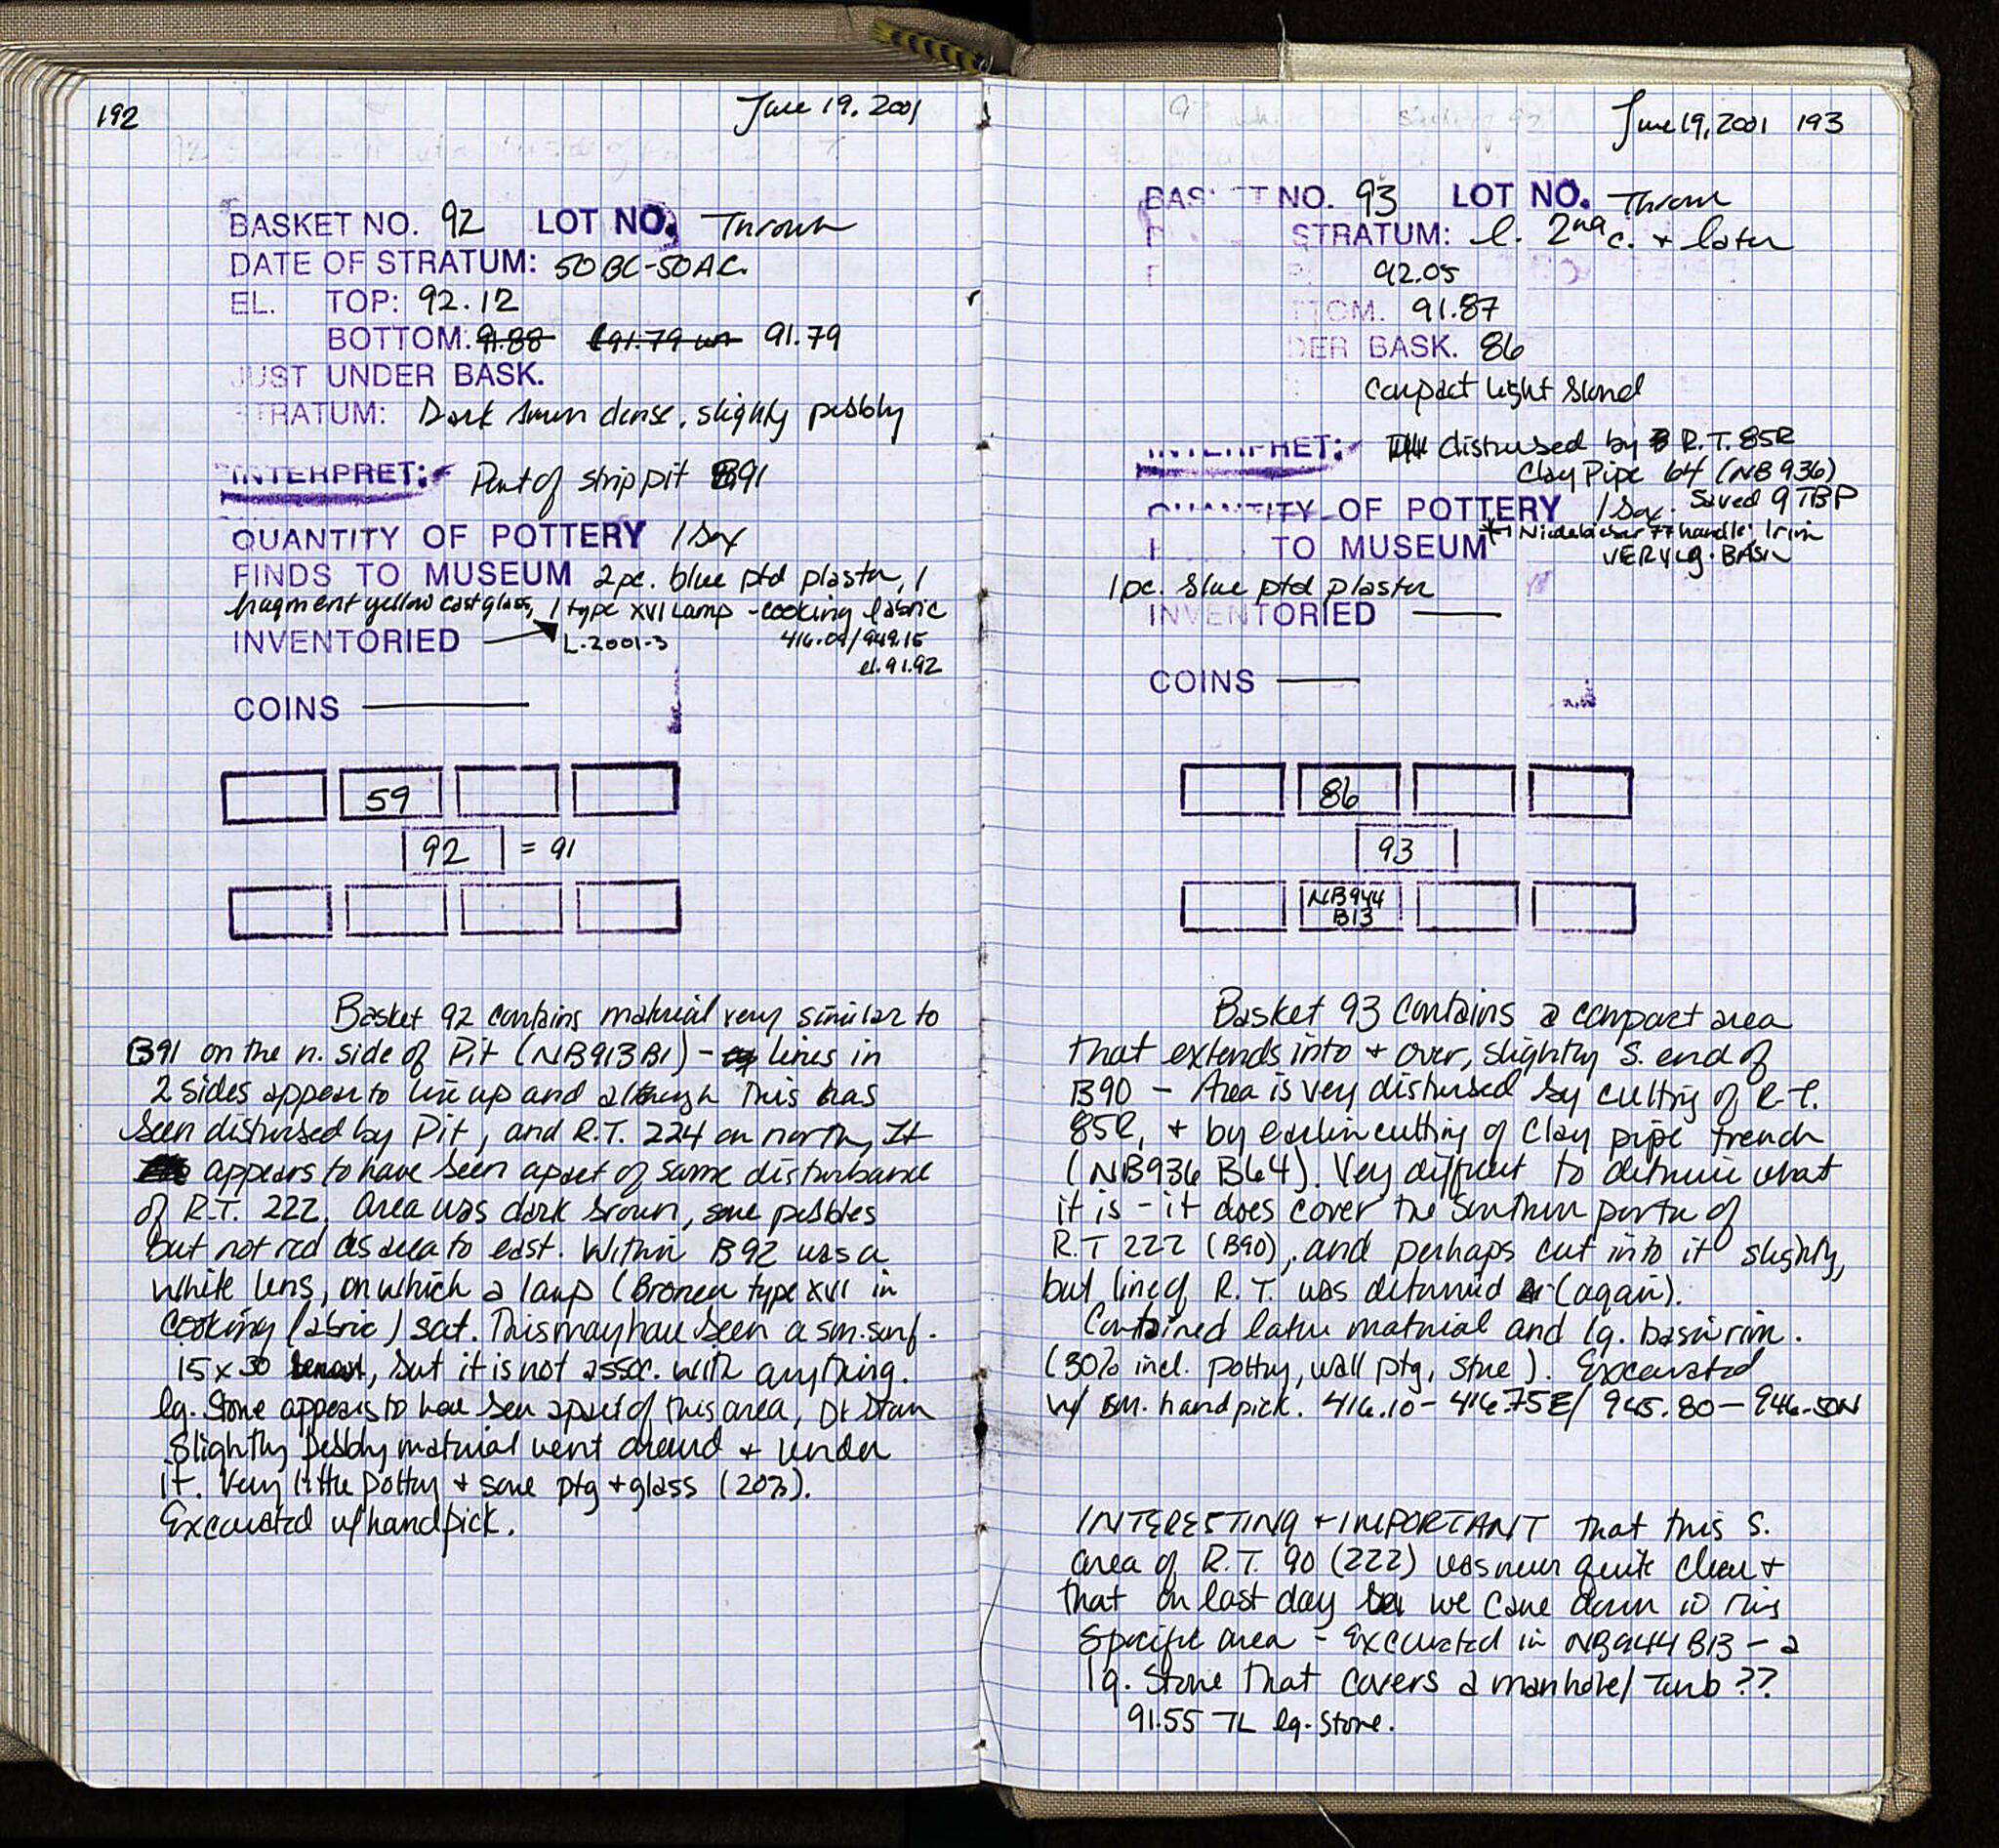 192
June 19, 2001
BASKET NO. 92 LOT NO. Thrown
DATE OF STRATUM: 50BC-50AC.
EL. TOP: 92.12
BOTTOM: 91.88 91.79 91.79
JUST UNDER BASK.
STRATUM: Dark brown dense, slighly pebbly
INTERPRET: Part of strip pit B91
QUANTITY OF POTTERY 1 box
FINDS TO MUSEUM 2pc. blue ptd plaster, 1
fragment yellow cast glass, 1 type XVI Lamp - cooking fabric
INVENTORIED L-2001-3 416.09/949.15
el. 91.92
COINS
59
92 = 91
Basket 92 contains material very similar to
B91 on the n. side of Pit (NB913B1) - lines in
2 sides appear to line up and although This has
been disturbed by Pit, and R.T. 224 on north, It
appears to have been apart of same disturbance
of R.T. 222. Area was dark brown, some pebbles
but not red as area to east. Within B92 was a
White lens, on which a lamp (Broneer type XVI in
cooking fabric) sat. This may have been a sm. surf.
15x30, but it is not assoc. with anything.
lg. Stone appears to have been apart of this area, brown
slightly pebbly material went around + under
it. Very little pottery + some ptg + glass (20%).
Excavated w/handpick.
June 19, 2001 193
BASKET NO. 93 LOT NO. Thrown
STRATUM: l. 2nd c. + later
92.05
TTOM. 91.87
DER BASK. 86
Compact light sand
INTERPRET: disturbed by R.T. 85R
Clay Pipe 64 (NB936)
QUANTITY OF POTTERY 1 box. Saved 9 TBP
TO MUSEUM * 77 handle; 1 rim
VERY lg. BASIN
1pc. blue ptd plaster
INVENTORIED
COINS
86
93
NB944
B13
Basket 93 Contains a compact area
that extends into + over, slightly S. end of
B90 - Area is very disturbed by cutting of R.T.
85R, + by earlier cutting of Clay pipe trench
(NB936 B64). Very difficult to determine what
it is - it does cover the Southern portn of
R.T 222 (B90), and perhaps cut into it slightly,
but line of R.T. was determined (again).
Contained later material and lg. basin rim.
(30% incl. pottery, wall ptg, stone). Excavated
w/ sm. hand pick. 416.10 - 416.75E/ 945.80 - 946.50N
INTERESTING + IMPORTANT that this S.
area of R.T. 90 (222) was never quite clear +
that on last day we came down in this
specific area - Excavated in NB944 B13 - a
lg. Stone that covers a manhole/ Tomb??
91.55 TL lg. stone.